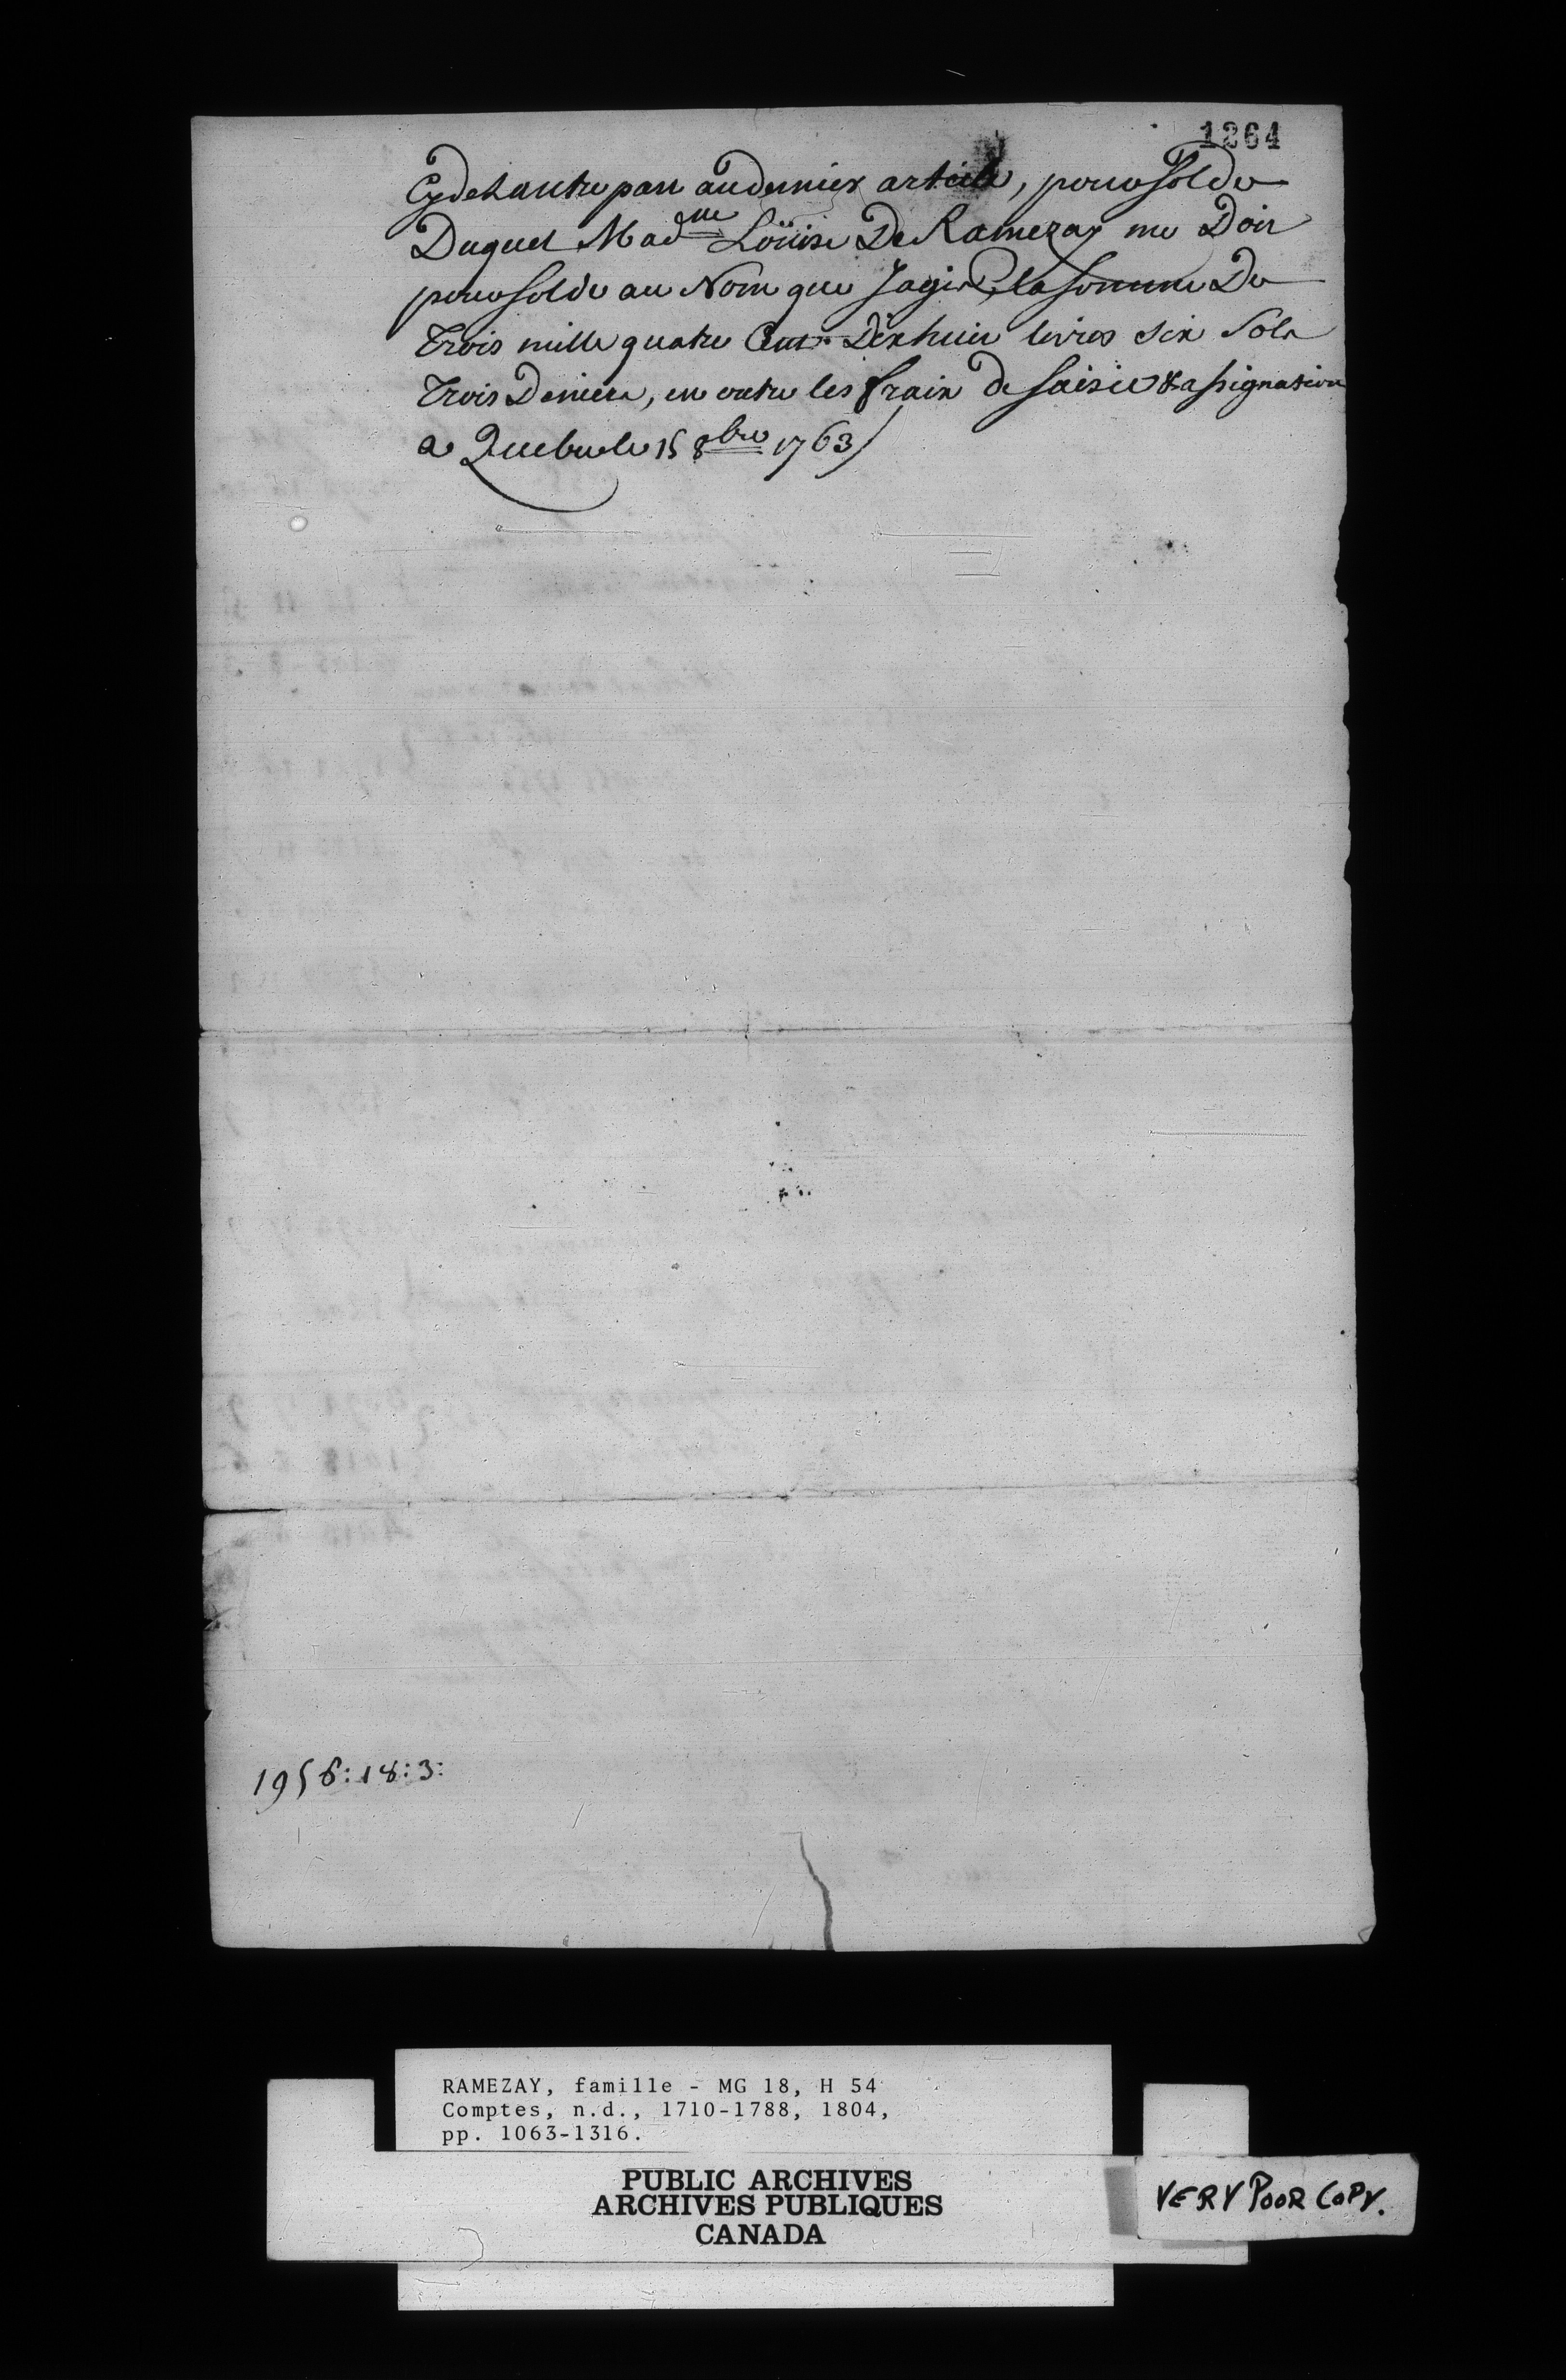 1264
Cy de Lautre part au dernier article, pour Solde
Duquel Mad.lle Loüise De Ramezay me Doit
pour Solde au Nom que Jagis, la Somme De
Trois mille quatre Cent Dix huit livres six Sols
Trois Deniers, en outre les frais de Saisie & assignation
a Quebec le 15 8bre 1763/
1956:18:3:
RAMEZAY, famille - MG 18, H 54
Comptes, n.d., 1710-1788, 1804,
pp. 1063-1316.
PUBLIC ARCHIVES
ARCHIVES PUBLIQUES
CANADA
VERY POOR COPY.